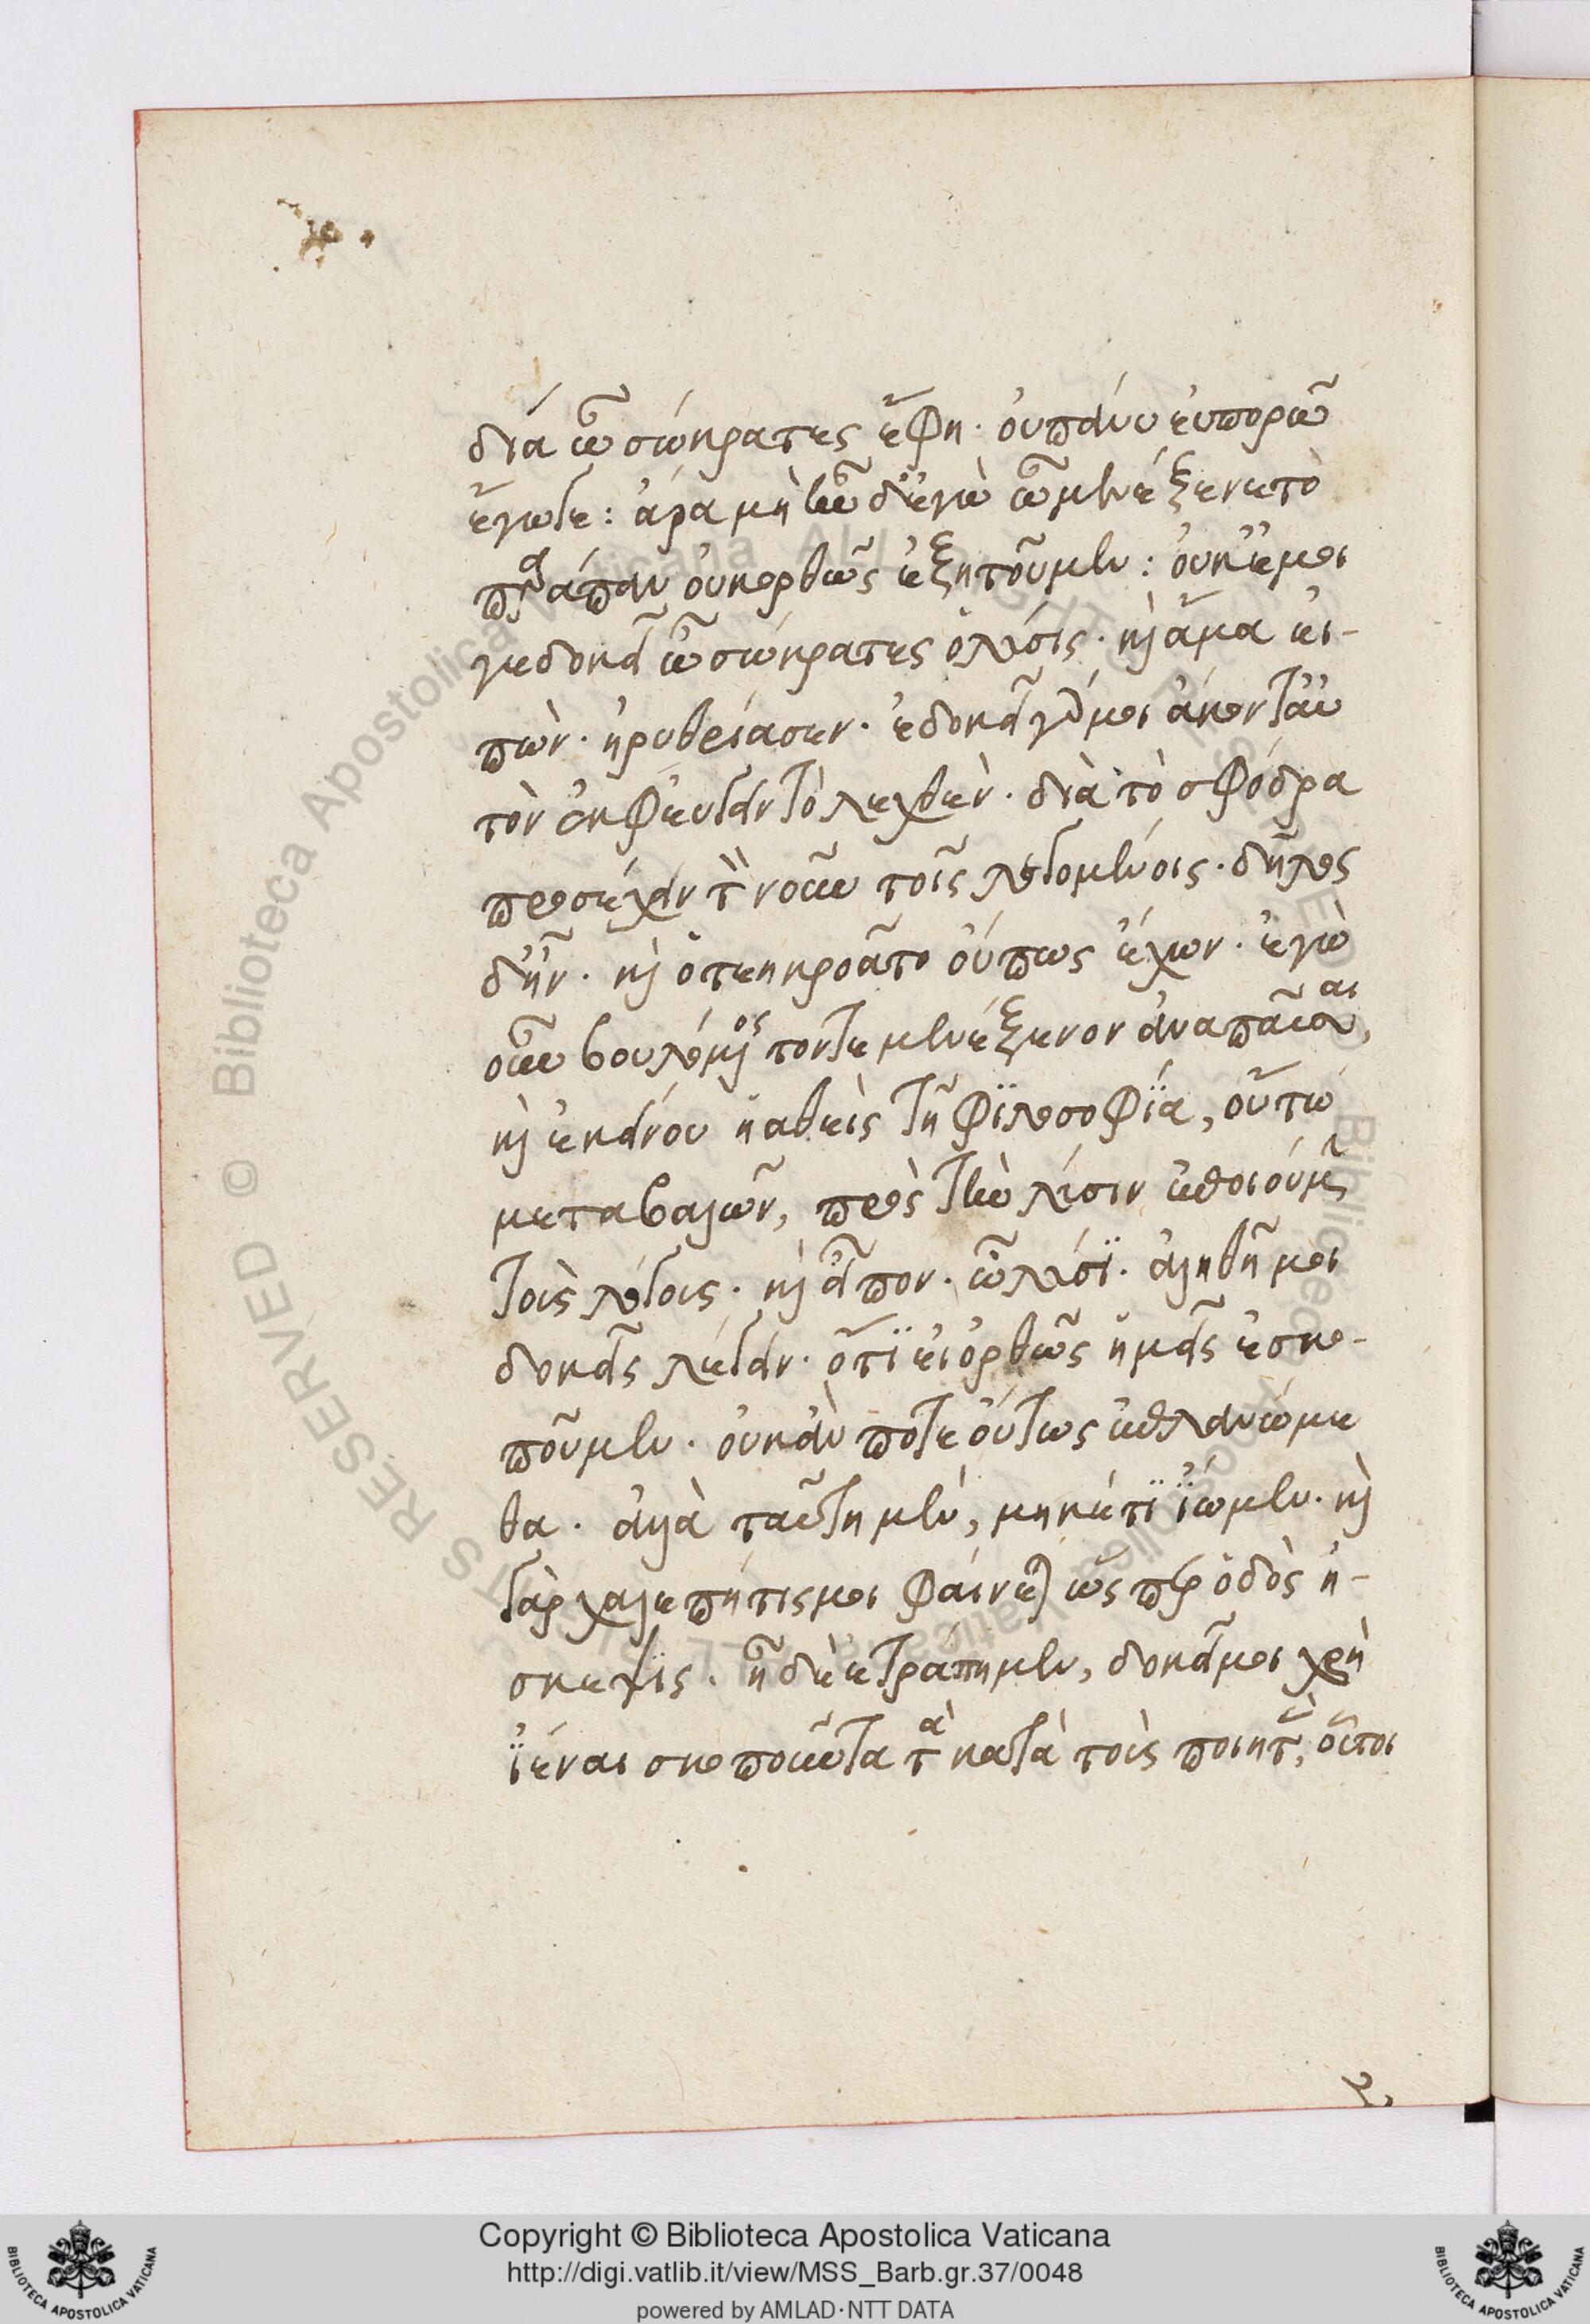 δία ὦ σώκρατες ἔφη· οὐπάνυ εὐπορῶ
ἔγωγε: ἆρα μὴ οὖν δ' ἐγὼ ὦ μενέξενε τὸ
παράπαν οὐκορθῶς ἐξητοῦμεν: οὐκ ἔμοι
γεδοκεῖ ὦ σώκρατες ὁ λύσις· κὶ ἅμα εἰ-
πὼν· ἠρυθρίασεν· ἐδοκεῖ γάρ μοι ἄκοντ' αὐ
τὸν ἐκφεύγειν τὸ λεχθὲν· διὰ τὸ σφόδρα
προσέχειν τὸν νοῦν τοῖς λεγομένοις· δῆλος
δ' ἦν· κὶ ὅτε ἠκροᾶτο οὕτως ἔχων· ἐγὼ
οὖν βουλόμενος τόντε μενέξενον ἀναπαῦσαι,
κὶ ἐκείνου ἡσθεὶς τῇ φϊλοσοφϊα, οὕτω
μεταβαλὼν, πρὸς τὸν λύσιν ἐποιούμην
τοὺς λόγους· κὶ εἶπον· ὦ λύσϊ· ἀληθῆ μοι
δοκεῖς λέγειν· ὅτϊ εἰ ὀρθῶς ἡμεῖς ἐσκο-
ποῦμεν· οὐκἂν ποτε οὕτως ἐπλανώμε
θα· ἀλλὰ ταύτῃ μὲν, μηκέτϊ ἴωμεν· κὶ
γὰρ χαλεπήτίςμοι φαίνεται ὥςπερ ὁδὸς ἡ-
σκεψϊς· ᾗ δὲ ἐτράπημεν, δοκεῖμοι χρὴ
ἰέναι σκοποῦντα τὰ κατὰ τοὺς ποιητὰς, οὗτοι
Copyright © Biblioteca Apostolica Vaticana
http://digi.vatlib.it/view/MSS_Barb.gr.37/0048
powered by AMLAD·NTT DATA